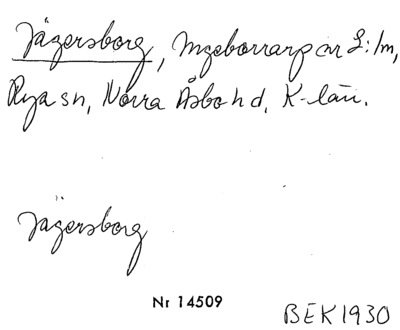 Jägersborg, Ingeborrarp ar 2:1m,
Rya sn, Norra Åsbo hd, K-län.
Jägersborg
Nr 14509
BEK 1930